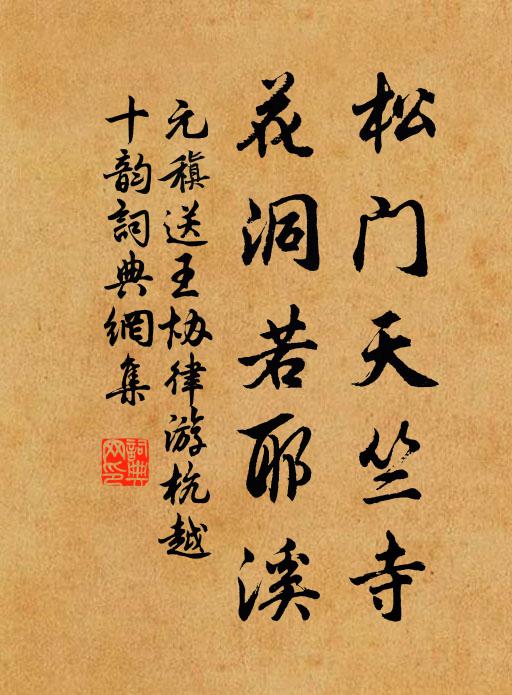 松门天竺寺
花洞若耶溪
元稹送王协律游杭越
十韵詞典網集
詞典网印